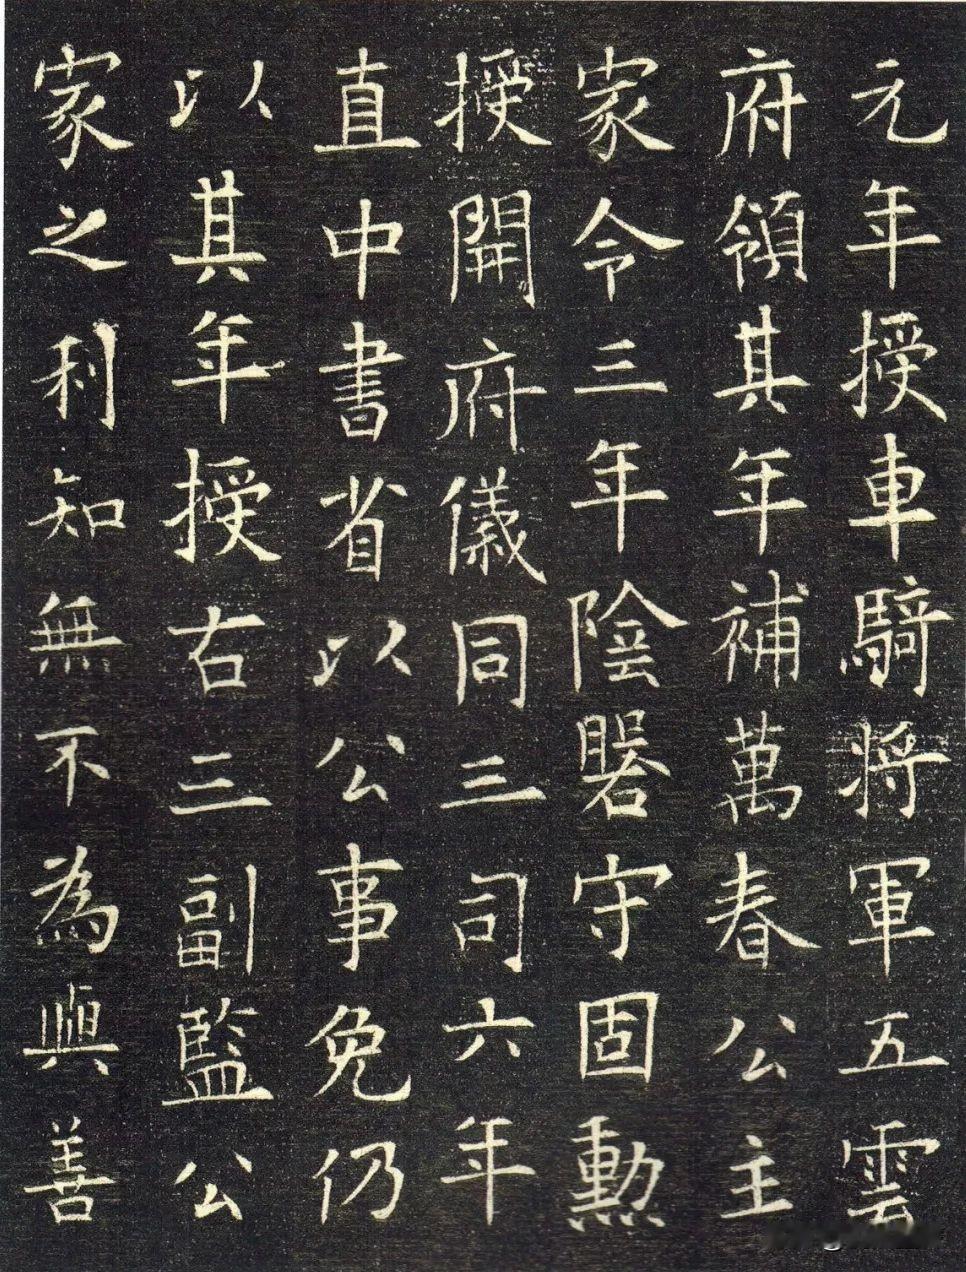 元年授車騎將軍五雲
府領其年補萬春公主
家令三年陰署守固勳
授開府儀同三司六年
直中書省以公事免仍
以其年授右三副監公
家之利知無不為與善